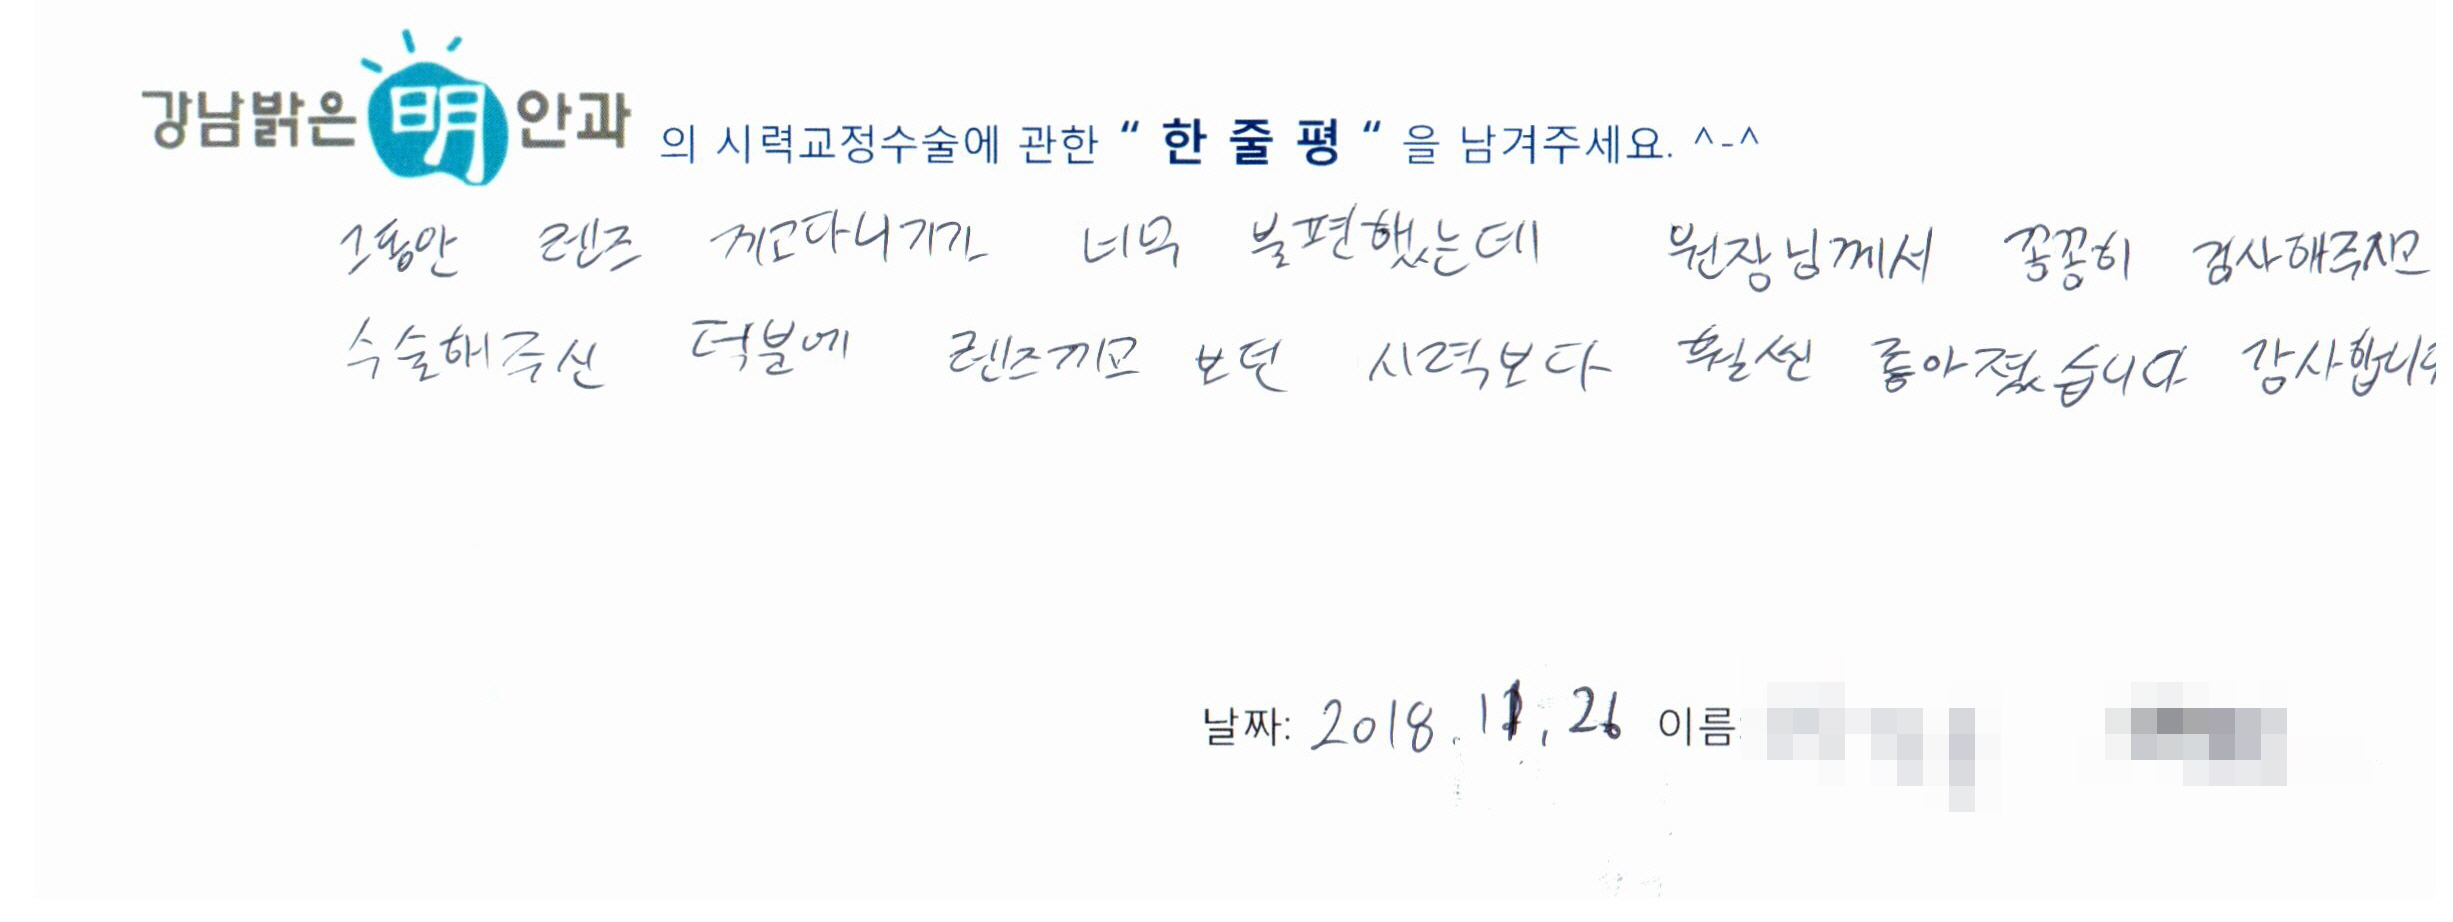 강남밝은 明 안과 의 시력교정수술에 관한 “ 한 줄 평 “ 을 남겨주세요. ^-^
그동안 렌즈 끼고다니기가 너무 불편했는데 원장님께서 꼼꼼히 검사해주시고
수술해주신 덕분에 렌즈끼고 보던 시력보다 훨씬 좋아졌습니다 감사합니다
날짜: 2018. 11. 26 이름: